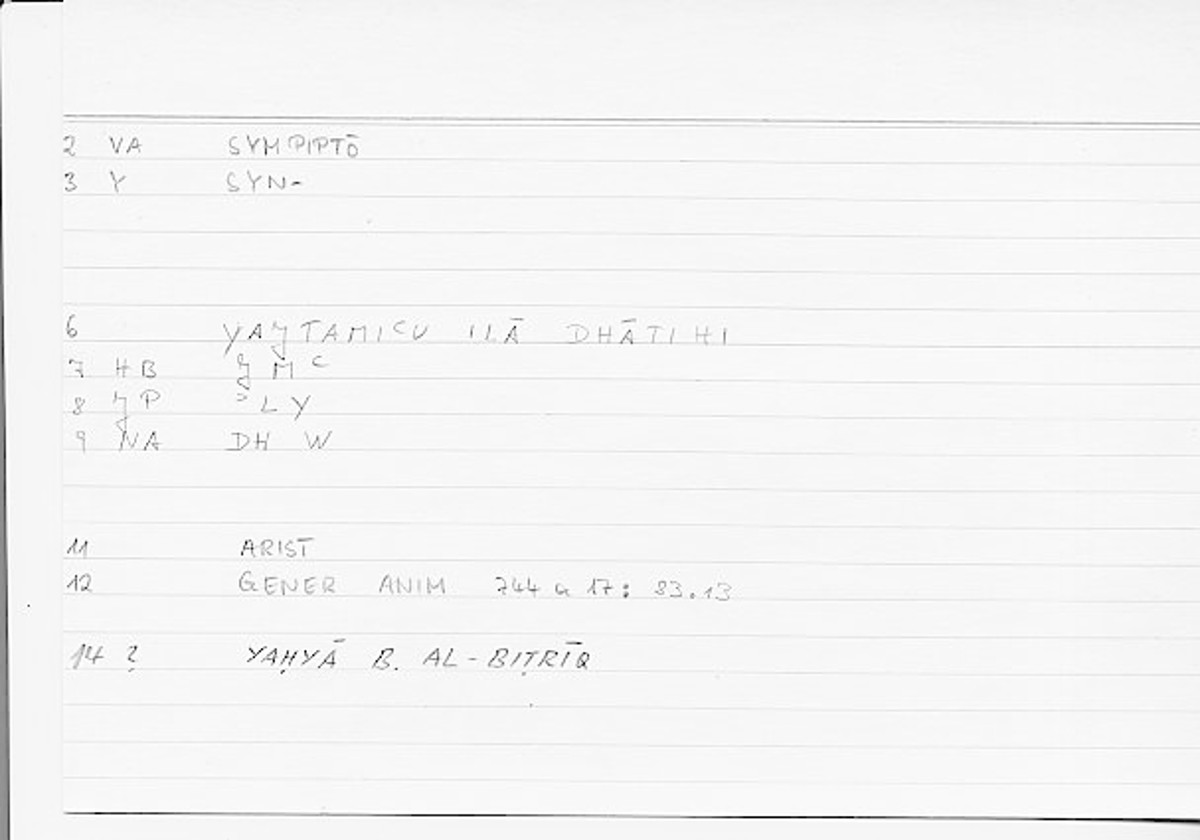 2 VA SYMPIPTŌ
3 Y SYN-
6 YAJTAMICU ILĀ DHĀTIHI
7 HB J M C
8 JP ɔ L Y
9 NA DH W
11 ARIST
12 GENER ANIM 744 a 17: 83.13
14 ? YAḤYĀ B. AL-BIṬRĪQ